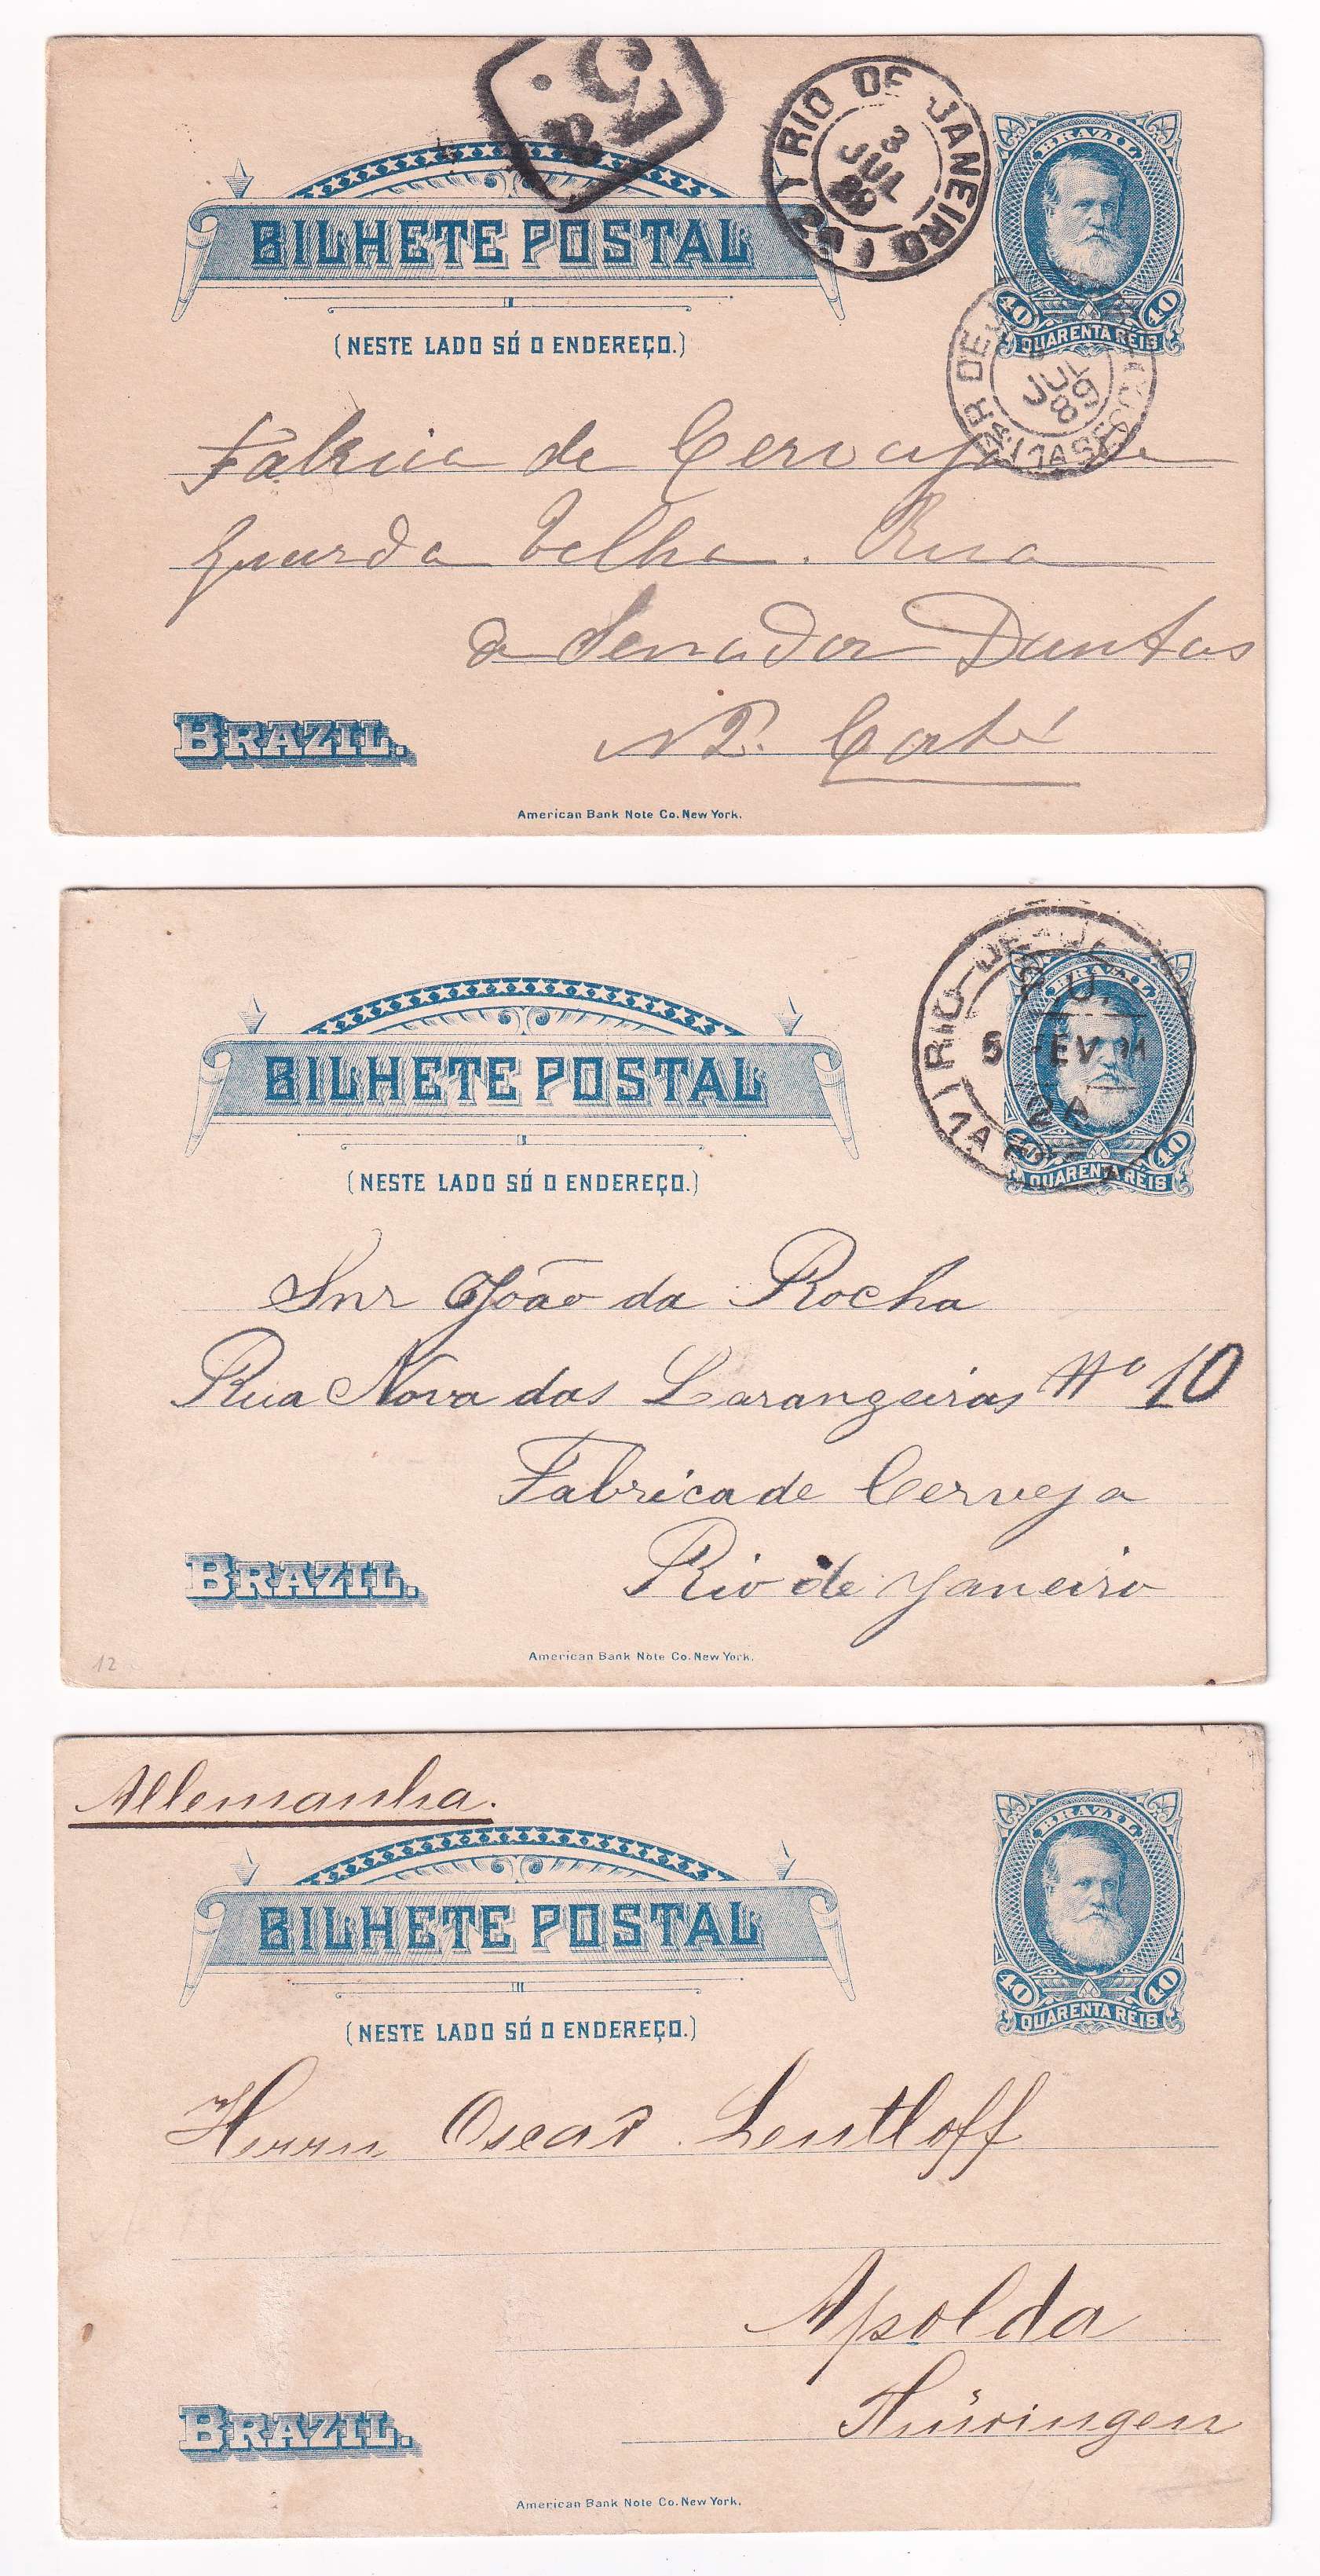 RIO DE JANEIRO
3
JUL
BRAZIL
BILHETE POSTAL
40 40
QUARENTA RÉIS
(NESTE LADO SÓ O ENDEREÇO.)
JUL
89
1A SEC
Fabrica de Cerveja
guarda Velha. Rua
a Senador Dantas
Corte
BRAZIL.
American Bank Note Co. New York.
RIO DE
BRAZIL
BILHETE POSTAL
40
QUARENTA RÉIS
(NESTE LADO SÓ O ENDEREÇO.)
Snr João da Rocha
Rua Nova das Laranzeiras No 10
Fabrica de Cerveja
Rio de Janeiro
BRAZIL.
12
American Bank Note Co. New York.
Allemanha.
BRAZIL
BILHETE POSTAL
40 40
QUARENTA RÉIS
(NESTE LADO SÓ O ENDEREÇO.)
Herrn Oscar Leutloff
Apolda
Thüringen
BRAZIL.
American Bank Note Co. New York.